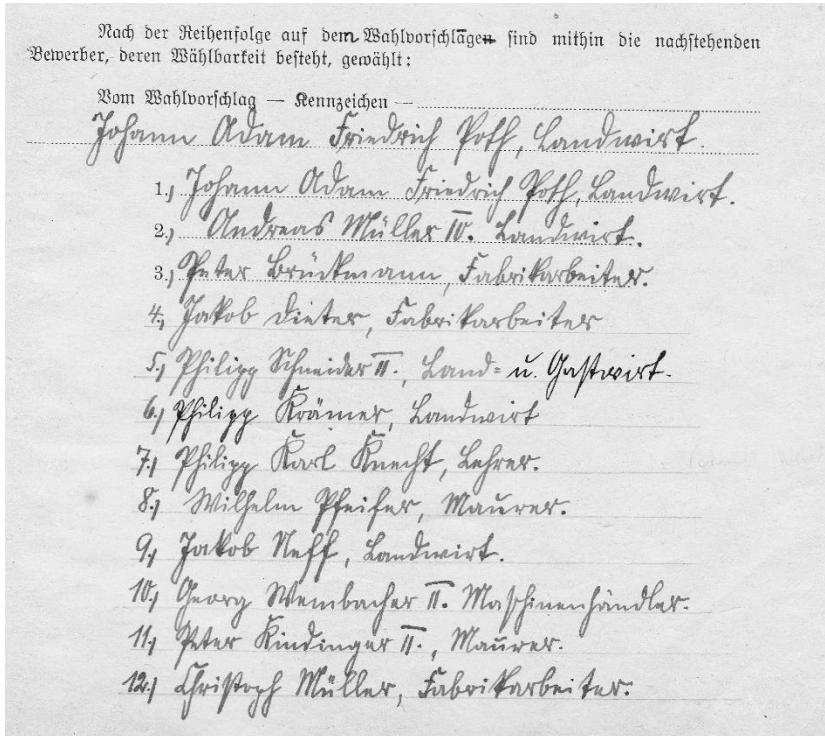 Nach der Reihenfolge auf dem Wahlvorschlagen sind mithin die nachstehenden
Bewerber, deren Wählbarkeit besteht, gewählt:
Vom Wahlvorschlag — Kennzeichen —
Johann Adam Friedrich Poth, Landwirt.
1.) Johann Adam Friedrich Poth, Landwirt.
2.) Andreas Müller IV. Landwirt.
3.) Peter Brückmann, Fabrikarbeiter.
4.) Jakob Dieter, Fabrikarbeiter
5.) Philipp Schneider II., Land= u. Gastwirt.
6.) Philipp Krämer, Landwirt
7.) Philipp Karl Knecht, Lehrer.
8.) Wilhelm Pfeifer, Maurer.
9.) Jakob Neff, Landwirt.
10.) Georg Wembacher II. Maschinenhändler.
11.) Peter Kindinger II., Maurer.
12.) Christoph Müller, Fabrikarbeiter.